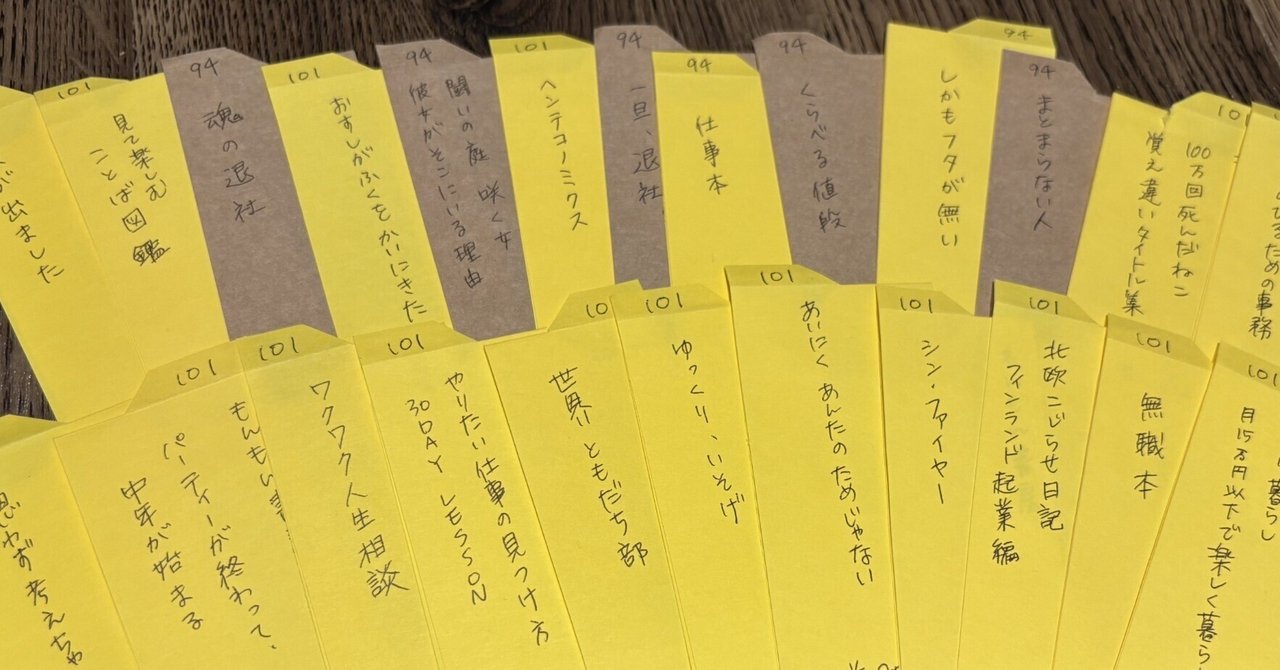 が出ました
101
見て楽しむ
ことば図鑑
94
魂の退社
101
おすしがふくをかいにきた
94
闘いの庭 咲く女
彼女がそこにいる理由
101
ヘンテコノミクス
94
一旦、退社
94
仕事本
94
くらべる値段
94
しかもフタが無い
94
まとまらない人
10
100万回死んだねこ
覚え違いタイトル集
ための事務
思わず考えちゃ
101
もんもい
パーティーが終わって、
中年が始まる
101
ワクワク人生相談
101
やりたい仕事の見つけ方
30DAY LESSON
10
世界ともだち部
101
ゆっくり、いそげ
101
あいにくあんたのためじゃない
101
シン・ファイヤー
101
北欧こじらせ日記
フィンランド起業編
101
無職本
101
暮らし
月15万円以下で楽しく暮ら